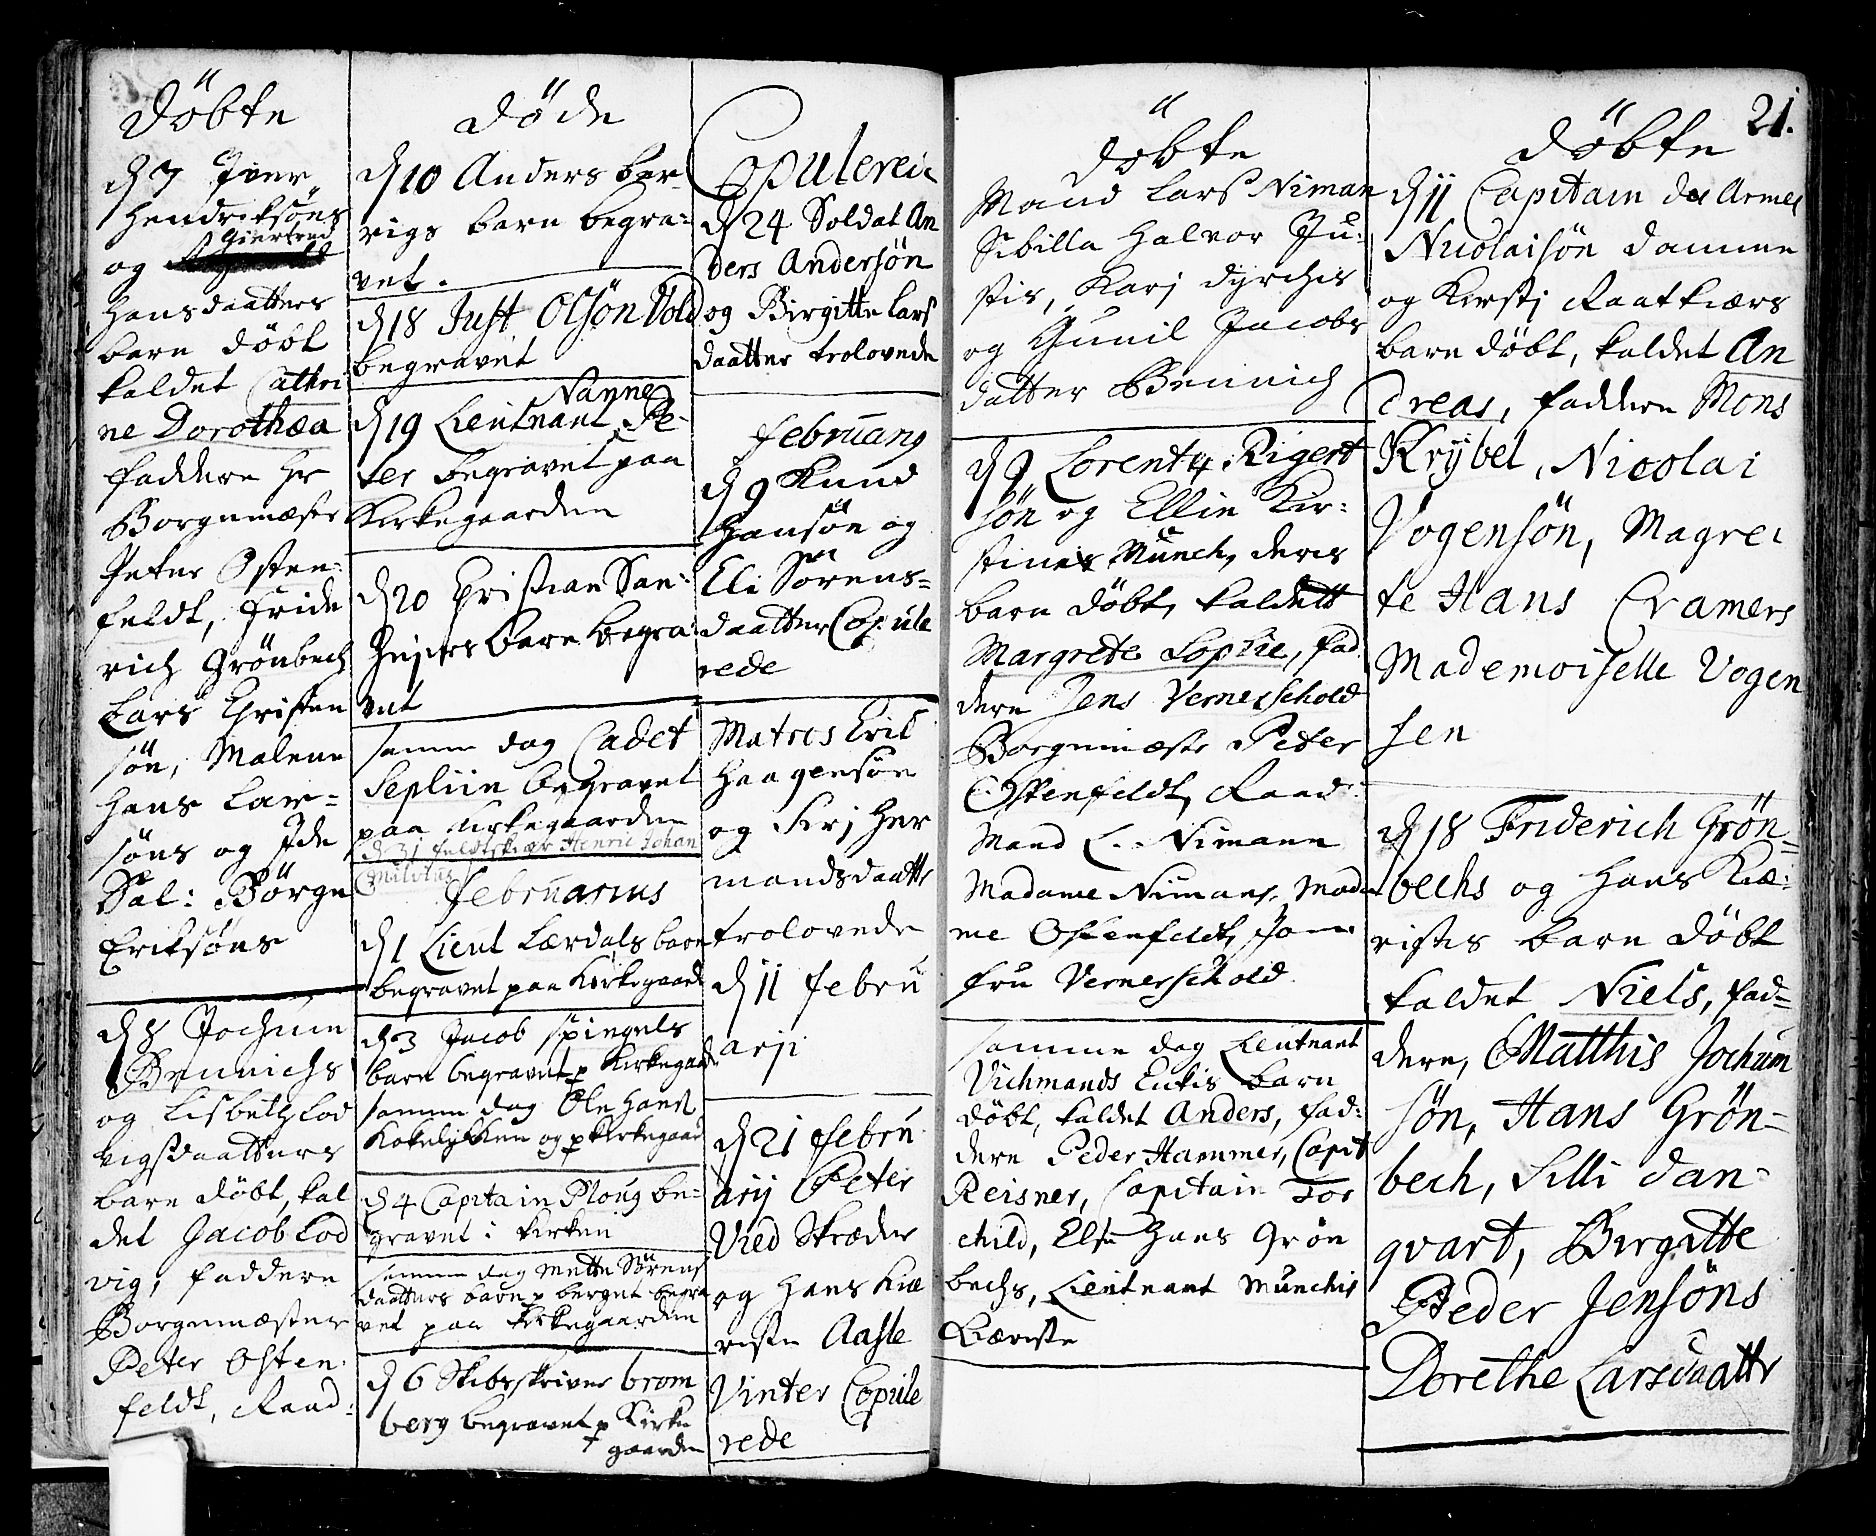 Döbte
d 7 Iver
Hendriksöns
Giertrud
og
Hansdaatters
barn döbt
kaldet Cathri
ne Dorothæa
faddere Hr
Borgemester
Peter Osten-
feldt, Fride
rich Grönbech
Lars Christen
sön, Malene
Hans Lar-
söns og Ide
Sal: Börge
Eriksöns
d 8 Jochum
Bennichs
og Lisbeth Lod
vigsdaatters
barn döbt, kal
det Jacob Lod
vig, faddere
Borgemester
Peter Osten
feldt, Raad:
Döde
d 10 Anders bar-
rigs barn begra-
vet.
d 18 Just Olsön Vold
begravet
Nanne
d 19 Lieutnant Pe-
ter begravet paa
Kirkegaarden
d 20 Christian San-
barn begra-
vet
samme dag Cadet
Sepliin begravet
paa Kirkegaarden
d 31 feldtskiær Henric Johan
Februarius
d 1 Lieut Lærdals barn
begravet paa Kirkegaard
d 3 Jacob Spingels
barn begravet p Kirkegaard
samme dag Ole Hans
Kokelykken og p Kirkegaard
d 4 Capitain Ploug be-
gravet i Kirken
samme dag Mette Sörens
daatters barn p berget begra
vet paa Kirkegaarden
d 6 Skibsskriver brom
berg begravet p Kirke
gaarden
Copulerede
d 24 Soldat An
ders Andersön
og Birgitte Lars
daatter trolovede
Februarij
d 9 Knud
Hansön og
Eli Sörens-
daatter Copule
rede
Matros Eric
Haagensön
og Siri Her
mandsdaatter
trolovede
d 11 Febru
arij
d 21 Febru
arij Peter
Vied Skræder
og Hans Kiæ
reste Aasle
Vinter Copule
rede
Döbte
Mand Lars Niman
Sibilla Halvor Ju-
stis, Kari Dyrchis
og Gunil Jacobs
datter Bennich
d 9 Lorentz Rigert
sön og Ellin Kir-
stines Munch, deris
barn döbt, kaldett
Margrete Sophie, fad
dere Jens Vernerschold
Borgemester Peter
Ostenfeldt, Raad:
Mand L. Nimann
Madame Nimans, Mada
me Ostenfeldt, Jom
fru Vernerschold
samme dag Lieutnant
Vichmands Enkis barn
döbt, kaldet Anders, fad-
dere Peder Hammer, Capit
Reisner, Capitain Tor
child, Else Hans Grön
bechs, Lieutnant Munchis
Kiæreste
21.
Döbte
d 11 Capitain des Armes
Nicolaisön Damme
og Kirsti Raatkiærs
barn döbt, kaldet An
dreas, faddere Mons
Krybel, Nicolai
Vogensön, Magre
te Hans Cramers
Mademoiselle Vogen
sen
d 18 Friderich Grön-
bechs og Hans Kiæ-
ristis barn döbt
kaldet Niels, fad-
dere, Matthis Jochum
sön, Hans Grön-
bech, Silli Dan-
qvart, Birgitte
Peder Jensöns
Dorethe Larsdaatter